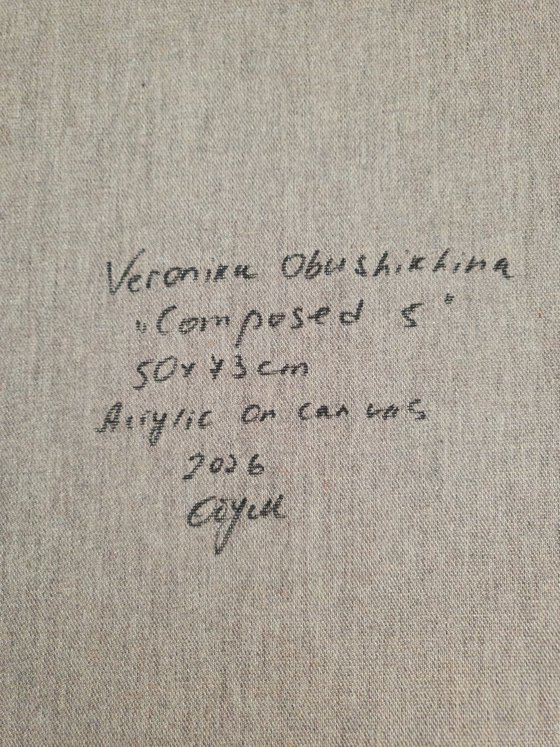 Veronika Obushikhina
"Composed 5"
50x73cm
Acrylic on canvas
2026